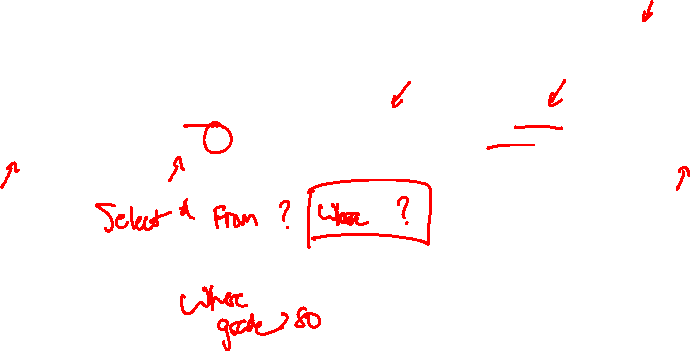 Select * From ? where ?
where
grade > 80